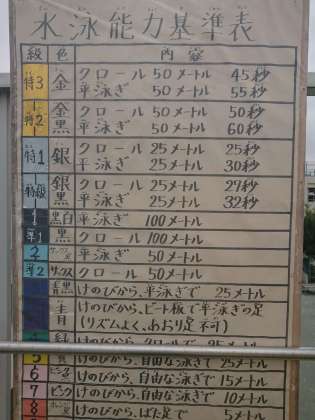 水泳能力基準表
級 色 内容
特3 金 クロール 50メートル 45秒
平泳ぎ 50メートル 55秒
特2 金黒 クロール 50メートル 50秒
平泳ぎ 50メートル 60秒
特1 銀 クロール 25メートル 25秒
平泳ぎ 25メートル 30秒
特級 銀黒 クロール 25メートル 27秒
平泳ぎ 25メートル 32秒
1 黒白 平泳ぎ 100メートル
準1 黒 クロール 100メートル
2 平泳ぎ 50メートル
準2 サックス クロール 50メートル
青黒 けのびから、平泳ぎで 25メートル
青 けのびから、ビート板で平泳ぎの足
(リズムよく、あおり足不可)
けのびから、クロールで 25メートル
5 けのびから、自由な泳ぎで25メートル
6 けのびから、自由な泳ぎで15メートル
7 ピンク けのびから、自由な泳ぎで10メートル
8 けのびから、ばた足で 5メートル